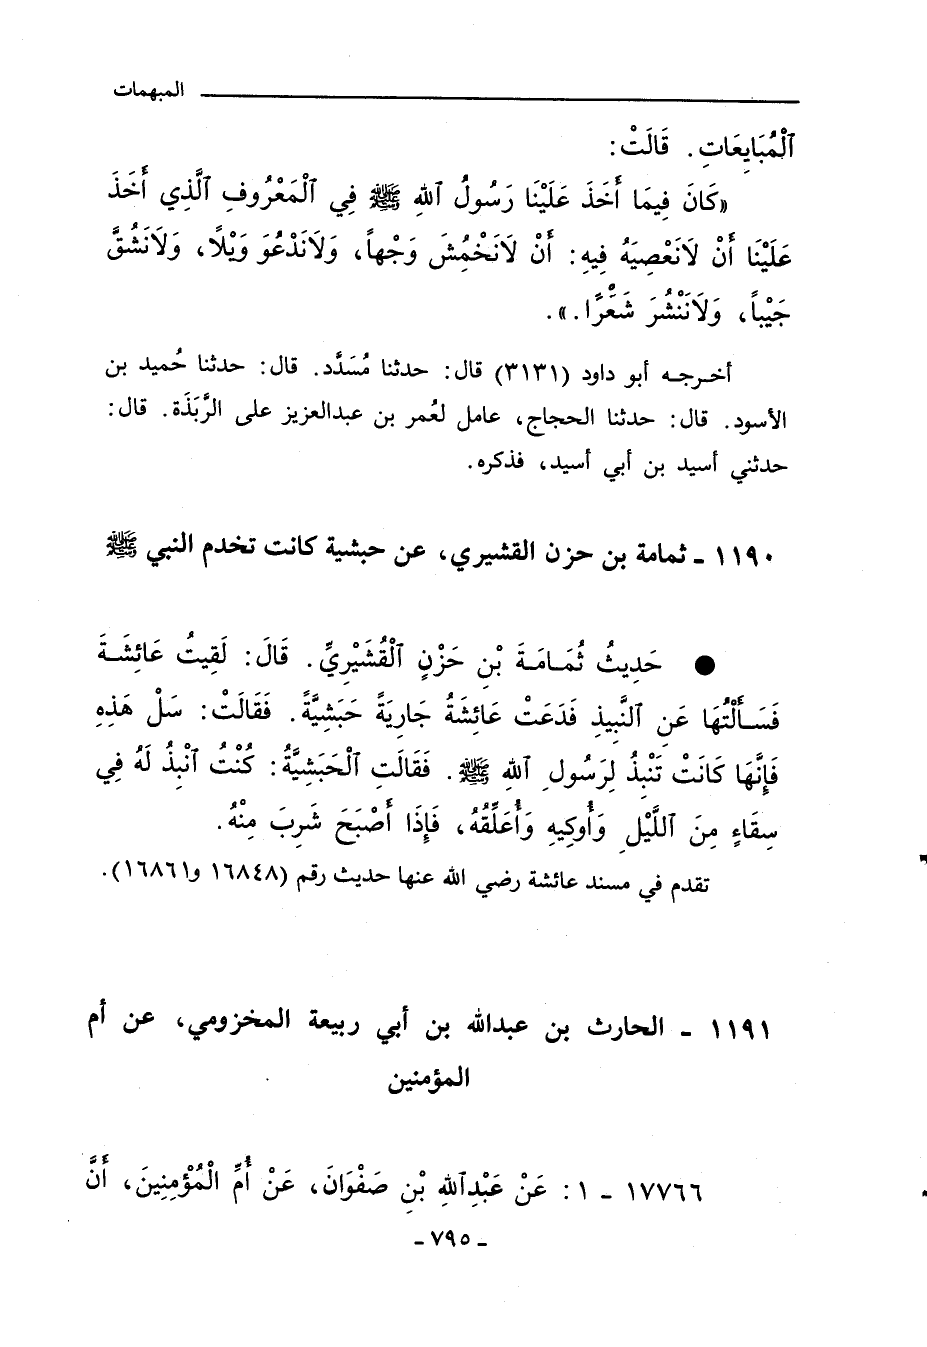 المبهمات
ٱلْمُبَايِعَاتِ. قَالَتْ:
«كَانَ فِيمَا أَخَذَ عَلَيْنَا رَسُولُ ٱللهِ ﷺ فِي ٱلْمَعْرُوفِ ٱلَّذِي أَخَذَ
عَلَيْنَا أَنْ لَانَعْصِيَهُ فِيهِ: أَنْ لَانَخْمُشَ وَجْهاً، وَلَانَدْعُوَ وَيْلاً، وَلَانَشُقَّ
جَيْباً، وَلَانَنْشُرَ شَعْرًا.».
أخرجه أبو داود (٣١٣١) قال: حدثنا مُسَدَّد. قال: حدثنا حُميد بن
الأسود. قال: حدثنا الحجاج، عامل لعُمر بن عبدالعزيز على الرَّبَذَة. قال:
حدثني أسيد بن أبي أسيد، فذكره.
١١٩٠ - ثمامة بن حزن القشيري، عن حبشية كانت تخدم النبي ﷺ
● حَدِيثُ ثُمَامَةَ بْنِ حَزْنٍ ٱلْقُشَيْرِيِّ. قَالَ: لَقِيتُ عَائِشَةَ
فَسَأَلْتُهَا عَنِ النَّبِيذِ فَدَعَتْ عَائِشَةُ جَارِيَةً حَبَشِيَّةً. فَقَالَتْ: سَلْ هَذِهِ
فَإِنَّهَا كَانَتْ تَنْبِذُ لِرَسُولِ ٱللهِ ﷺ. فَقَالَتِ ٱلْحَبَشِيَّةُ: كُنْتُ ٱنْبِذُ لَهُ فِي
سِقَاءٍ مِنَ ٱللَّيْلِ وَأُوكِيهِ وَأُعَلِّقُهُ، فَإِذَا أَصْبَحَ شَرِبَ مِنْهُ.
تقدم في مسند عائشة رضي الله عنها حديث رقم (١٦٨٤٨ و١٦٨٦١).
١١٩١ - الحارث بن عبدالله بن أبي ربيعة المخزومي، عن أم
المؤمنين
١٧٧٦٦ - ١: عَنْ عَبْدِٱللهِ بْنِ صَفْوَانَ، عَنْ أُمِّ الْمُؤْمِنِينَ، أَنَّ
- ٧٩٥ -